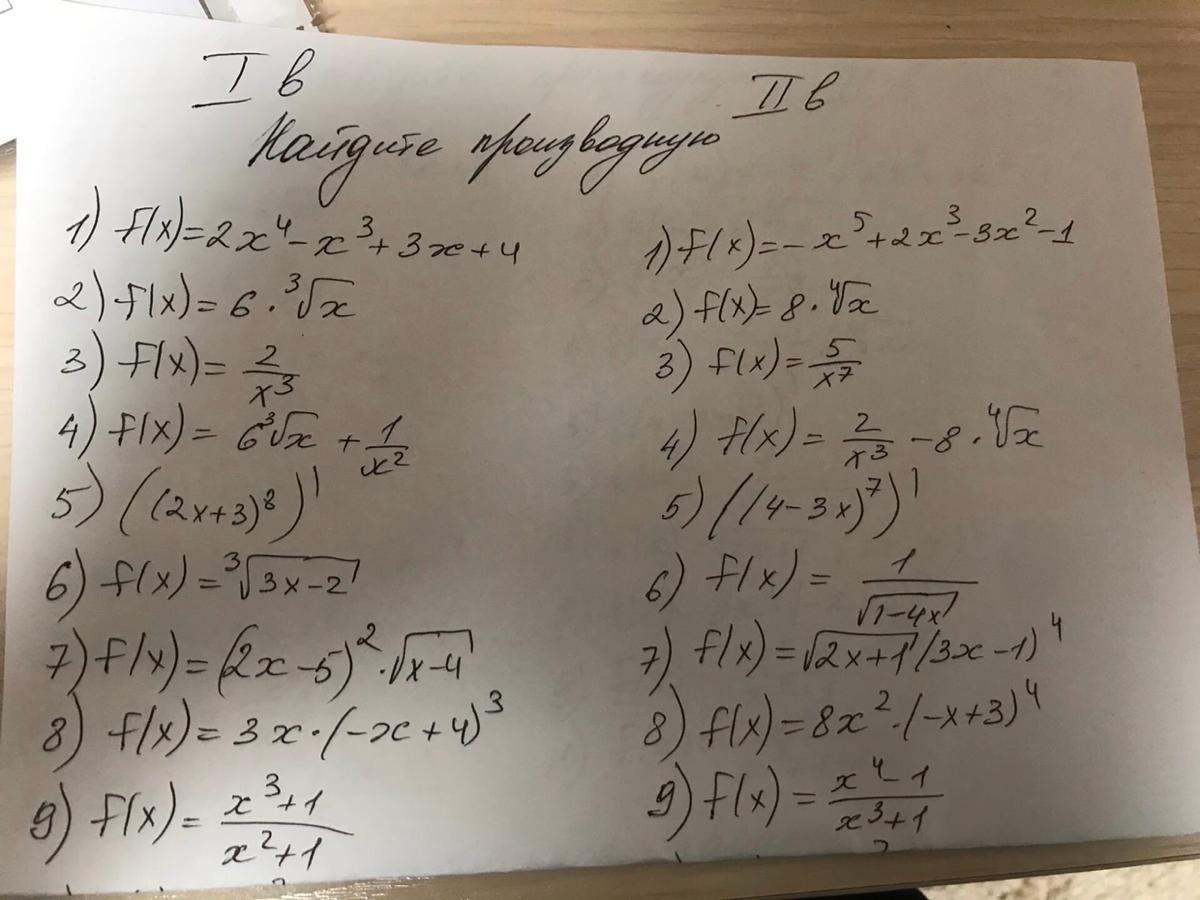 I в
II в
Найдите производную
1) f(x)=2x⁴-x³+3x+4
2) f(x)=6·³√x
3) f(x)=2/x³
4) f(x)=6³√x+1/x²
5) ((2x+3)⁸)'
6) f(x)=³√(3x-2)
7) f(x)=(2x-5)²·√(x-4)
8) f(x)=3x·(-x+4)³
9) f(x)=(x³+1)/(x²+1)
1) f(x)=-x⁵+2x³-3x²-1
2) f(x)=8·⁴√x
3) f(x)=5/x⁷
4) f(x)=2/x³-8·⁴√x
5) ((4-3x)⁷)'
6) f(x)=1/√(1-4x)
7) f(x)=√(2x+1)(3x-1)⁴
8) f(x)=8x²·(-x+3)⁴
9) f(x)=(x⁴-1)/(x³+1)